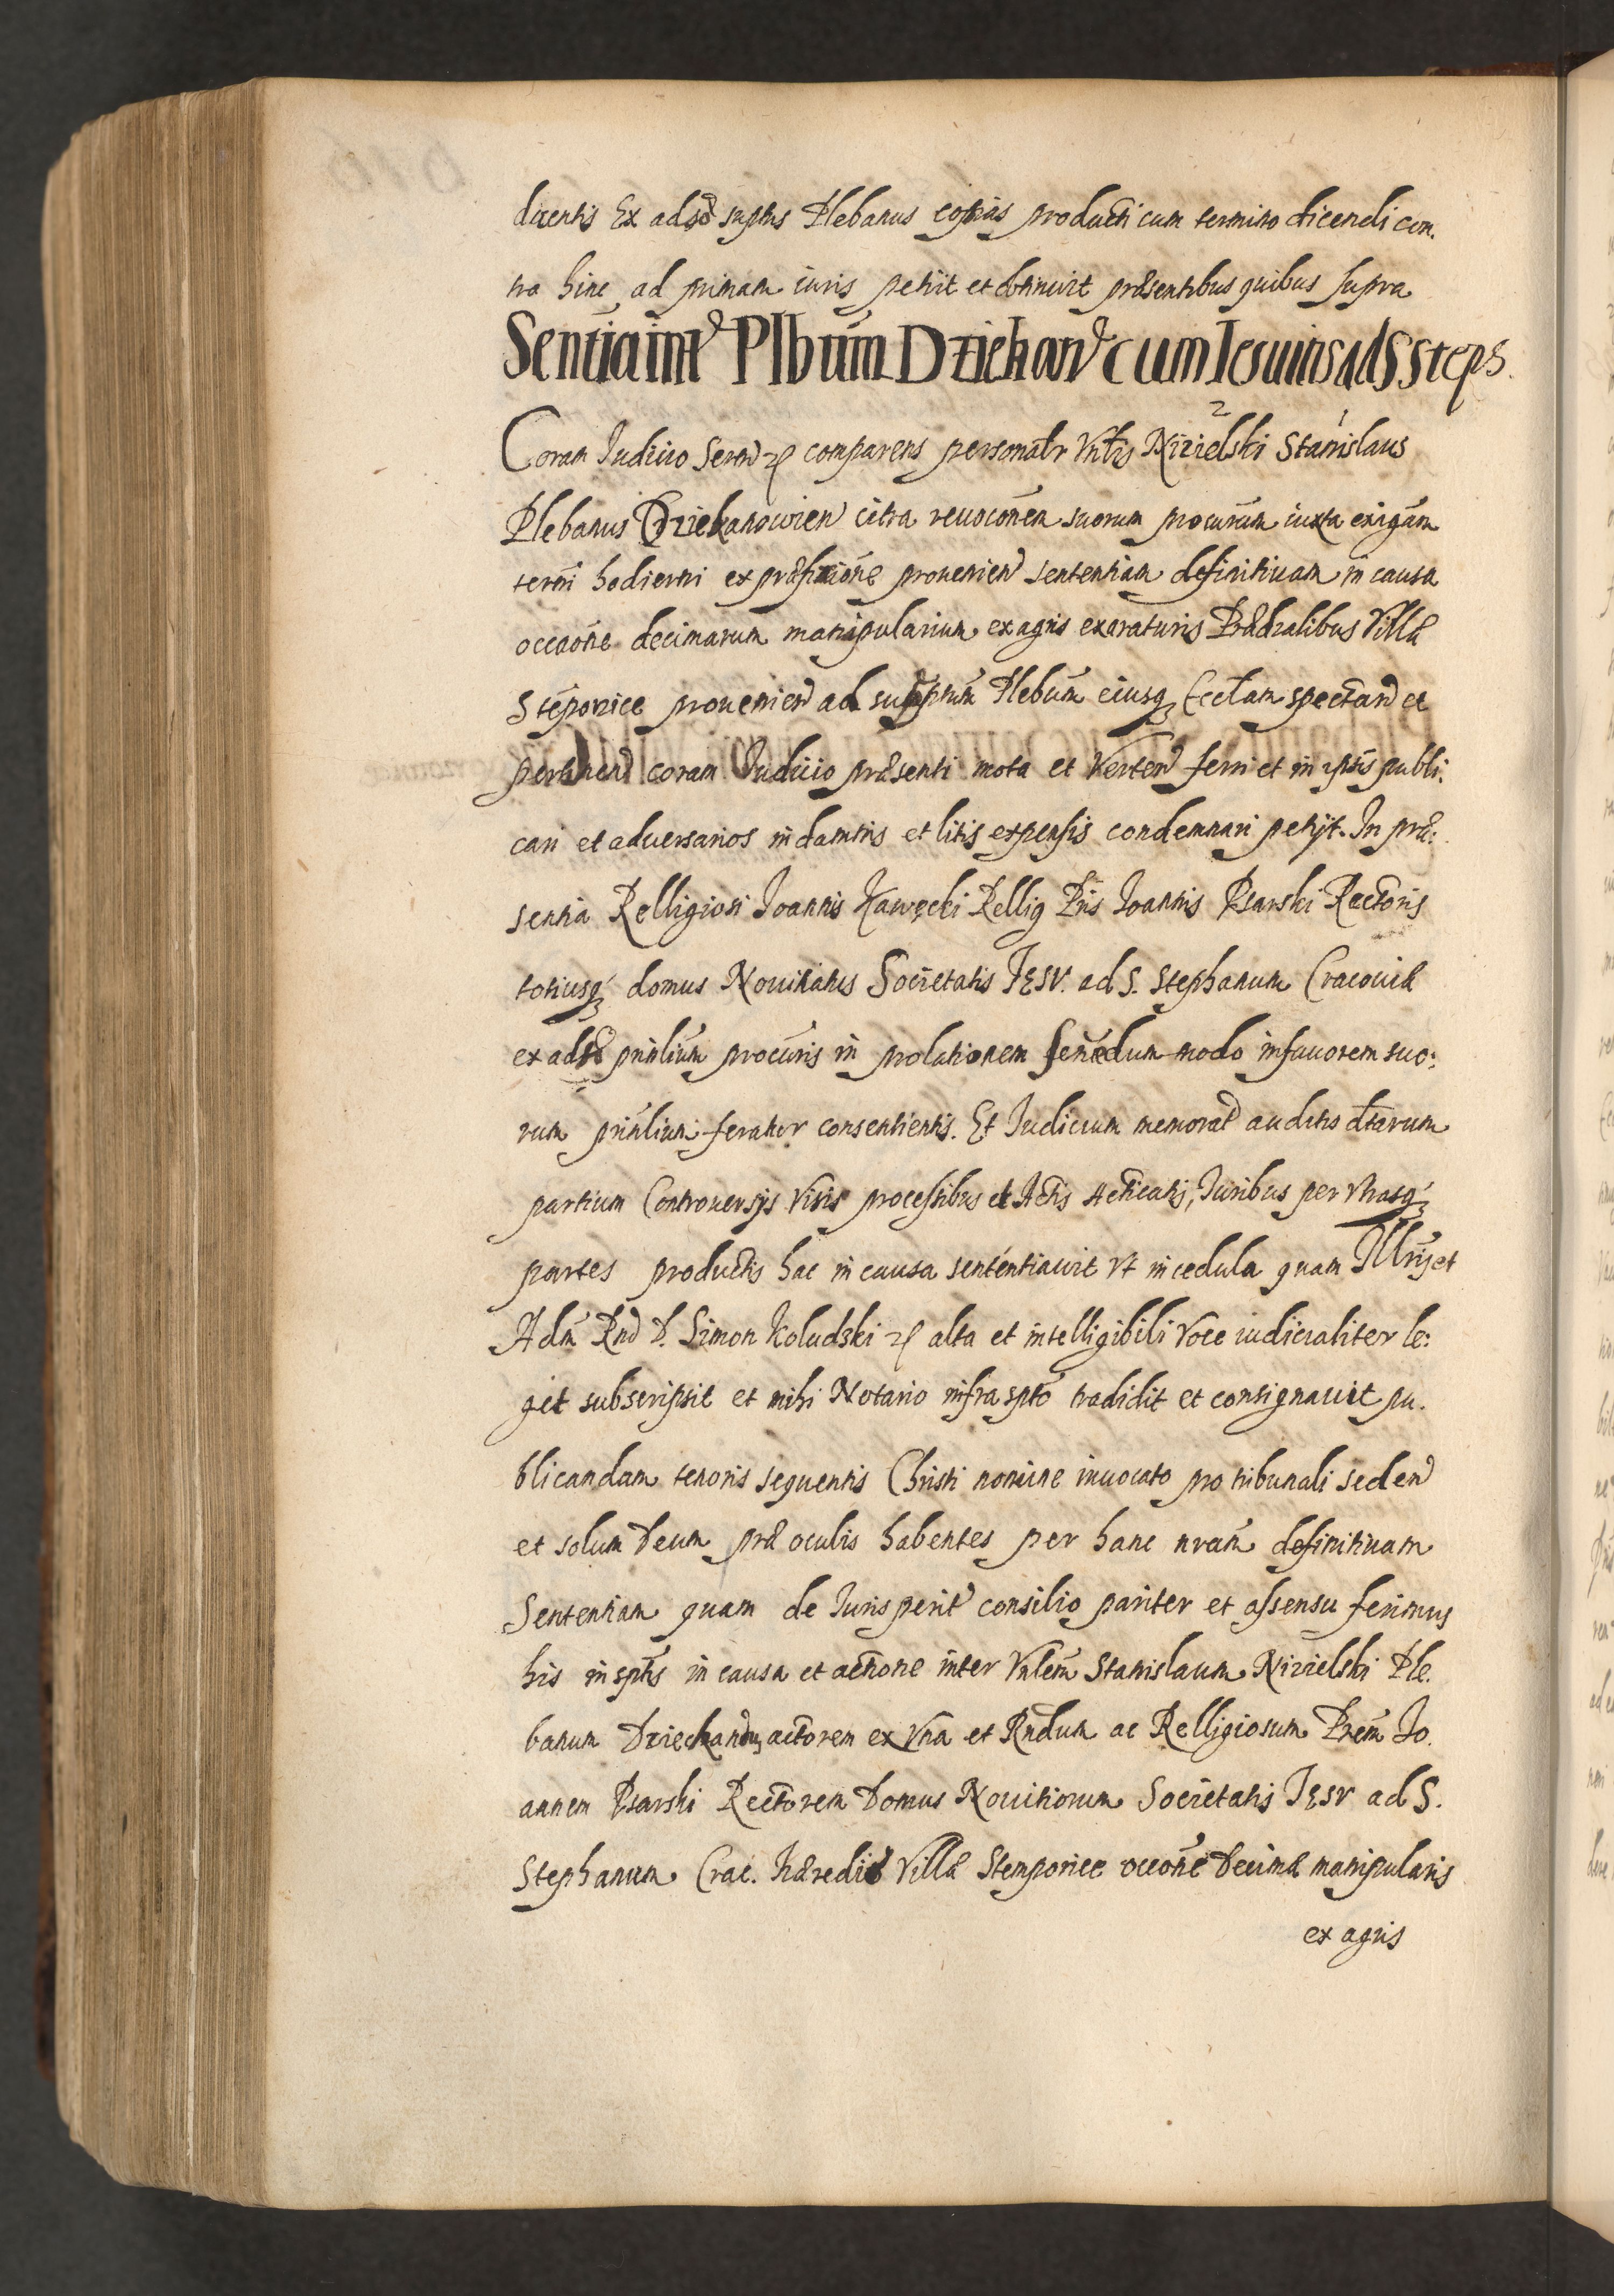 ducentis Ex adso suptus Plebanus copias producti cum termino dicendi con.
tra hinc ad primam iuris petiit et obtinuit præsentibus quibus supra
Sentia intr Plbum Dziekan cum Iesuitis ad S Steps.
Coram Iudicio Sernd comparens personalr Vnlis Nizielski Stanislaus
Plebanus Dziekanowien citra reuoconem suorum procurum iuxta exigam
termi hodierni ex præfixione prouenien sententiam definitiuam in causa
occaone decimarum manipularium ex agris exaraturis Prædialibus Villæ
Steponice prouenien ad suprptum Plebum eiusq Ecclam spectan et
pertinen coram Iudicio præsenti mota et Verten ferri et in scptis publi:
cari et aduersarios in damnis et litis expensis condemnari petijt. In præ:
sentia Relligiosi Ioannis Kawęcki Rellig Pris Ioannis Psarski Rectoris
totiusq domus Nouitiatus Societatis IESV. ad S. Stephanum Cracouiæ
ex adso prinlium procuris in prolationem senæ dum modo in fauorem suo:
rum prinlium feratur consentientis. Et Iudicium memorat auditis dtarum
partium Controuersijs Visis processibus et Actis Acticatis, Iuribus per Vtrasq
partes productis hac in causa sententiauit vt in cedula quam Illris et
Adm Rnd D. Simon Koludzki alta et intelligibili Voce iudicialiter le:
git subscripsit et mihi Notario infraspto tradidit et consignauit pu.
blicandam tenoris sequentis Christi nomine inuocato pro tribunali seden
et solum Deum præ oculis habentes per hanc nram definitiuam
Sententiam quam de Iurisperit consilio pariter et assensu ferimus
his in sptis in causa et actione inter Vnlem Stanislaum Nizielski Ple.
banum Dziechanou actorem ex Vna et Rndum ac Relligiosum Prem Io.
annem Psarski Rectorem Domus Nouitiorum Societatis IESV ad S.
Stephanum Crac. Hæredis Villæ Stemponice occone Decimæ manipularis
ex agris